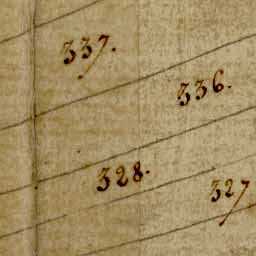 337.
336.
328.
327